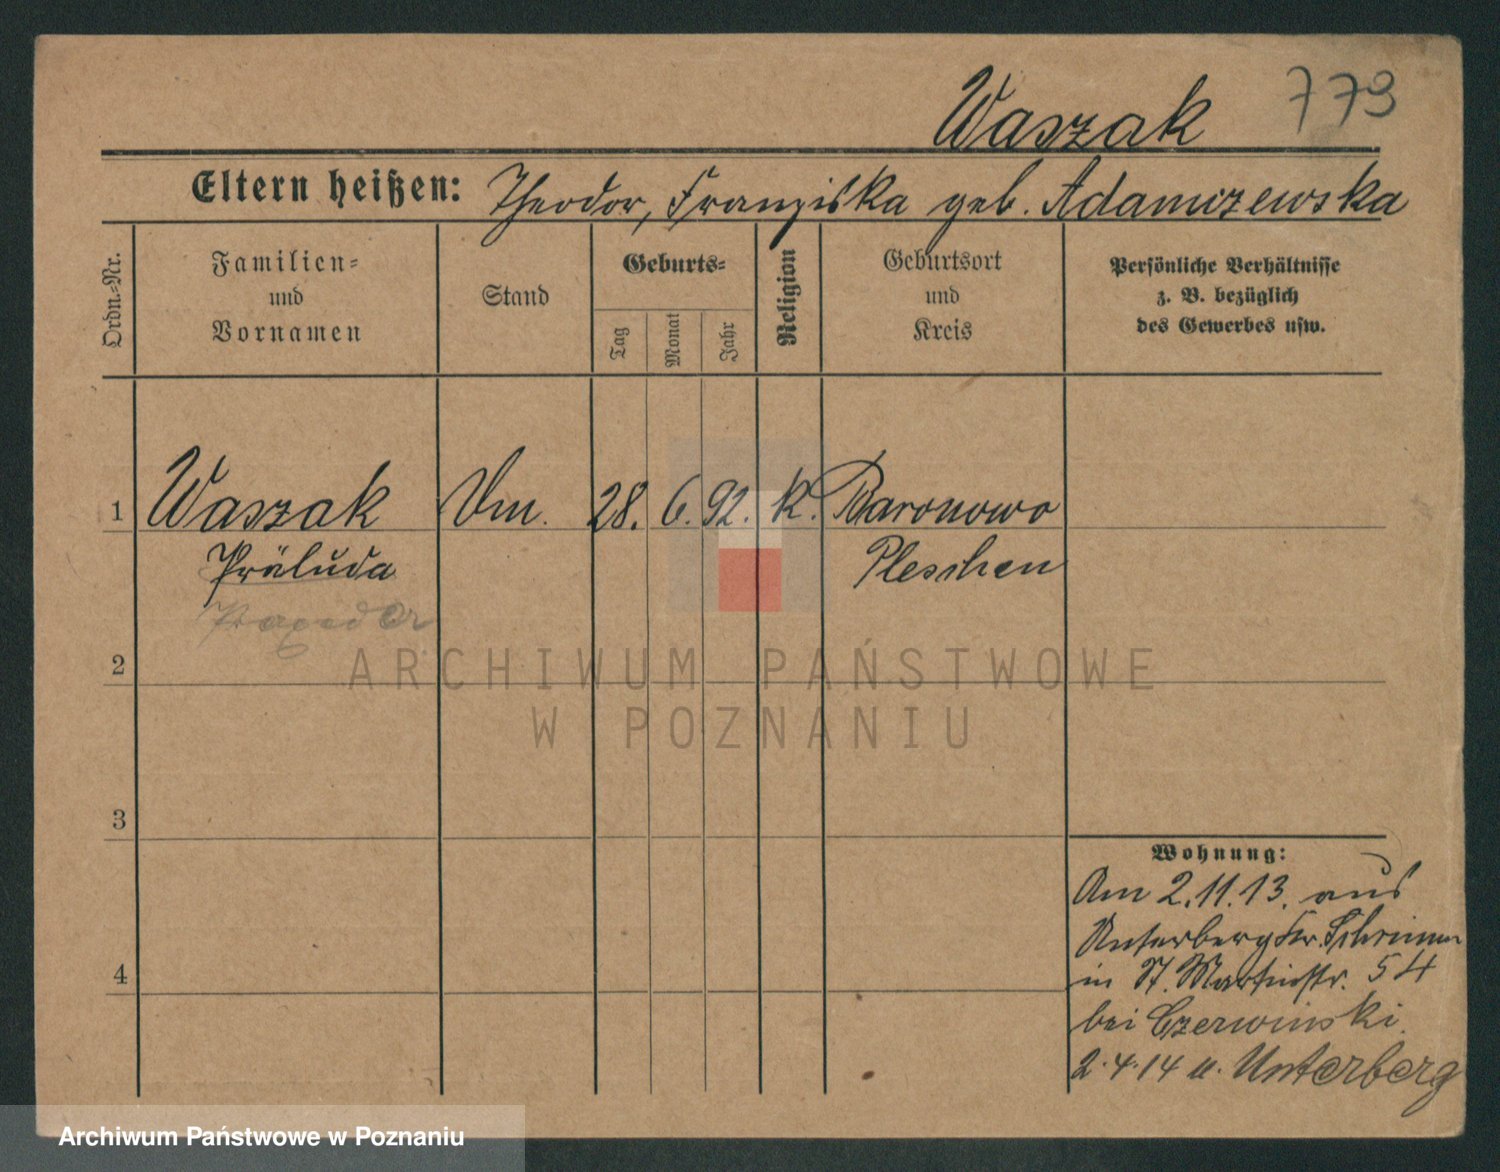 Waszak 779
Eltern heißen: Theodor, Franziska geb. Adamczewska
Ordn.=Nr.
Familien=
und
Vornamen
Stand
Geburts=
Tag
Monat
Jahr
Religion
Geburtsort
und
Kreis
Persönliche Verhältnisse
z. B. bezüglich
des Gewerbes usw.
1 Waszak Dm. 28. 6. 92. k. Baronowo
Präluda Pleschen
2
3
4
Wohnung:
Am 2.11.13. aus
Unterberg Kr. Schrimm
in St. Martinstr. 54
bei Czerwinski.
2.4.14 n. Unterberg
ARCHIWUM PAŃSTWOWE
W POZNANIU
Archiwum Państwowe w Poznaniu